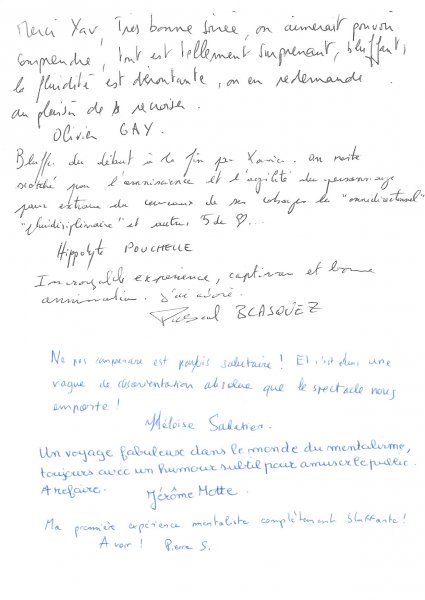 Merci Xav, Très bonne soirée, on aimerait pouvoir
comprendre, tout est tellement surprenant, bluffant,
la fluidité est déroutante, on en redemande.
au plaisir de se recroiser.
Olivier GAY.
Bluffé du début à la fin par Xavier. on reste
scotché par l'omniscience et l'agilité du personnage
pour extraire du cerveau de ses cobayes la "omnidirectionnel"
"pluridisciplinaire" et autres 5 de ♡...
Hippolyte POUCHELLE
Incroyable experience, captivan et bonne
annimation. J'ai adoré.
Pascal BLASQUEZ
Ne pas comprendre est parfois salutaire ! Et c'est dans une
vague de désorientation absolue que le spectacle nous
emporte !
Héloïse
Un voyage fabuleux dans le monde du mentalisme,
toujours avec un humour subtil pour amuser le public.
A refaire. Jérôme Motte.
Ma première expérience mentaliste complètement bluffante !
A voir ! Pierre S.